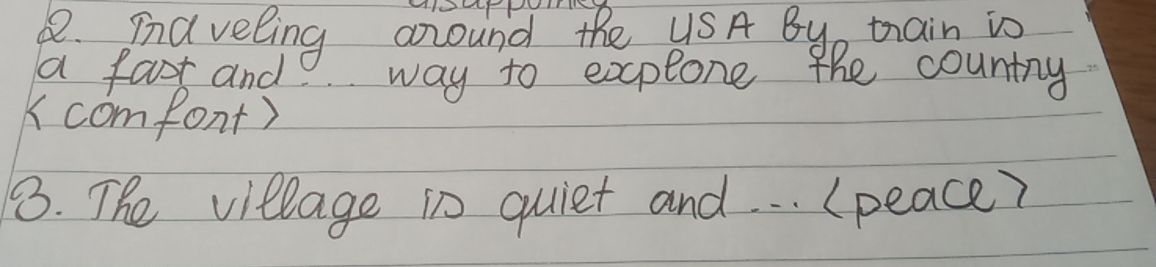 disappointed
2. Traveling around the USA By train is
a fast and ... way to explore the country
<comfort>
3. The village is quiet and ... <peace>